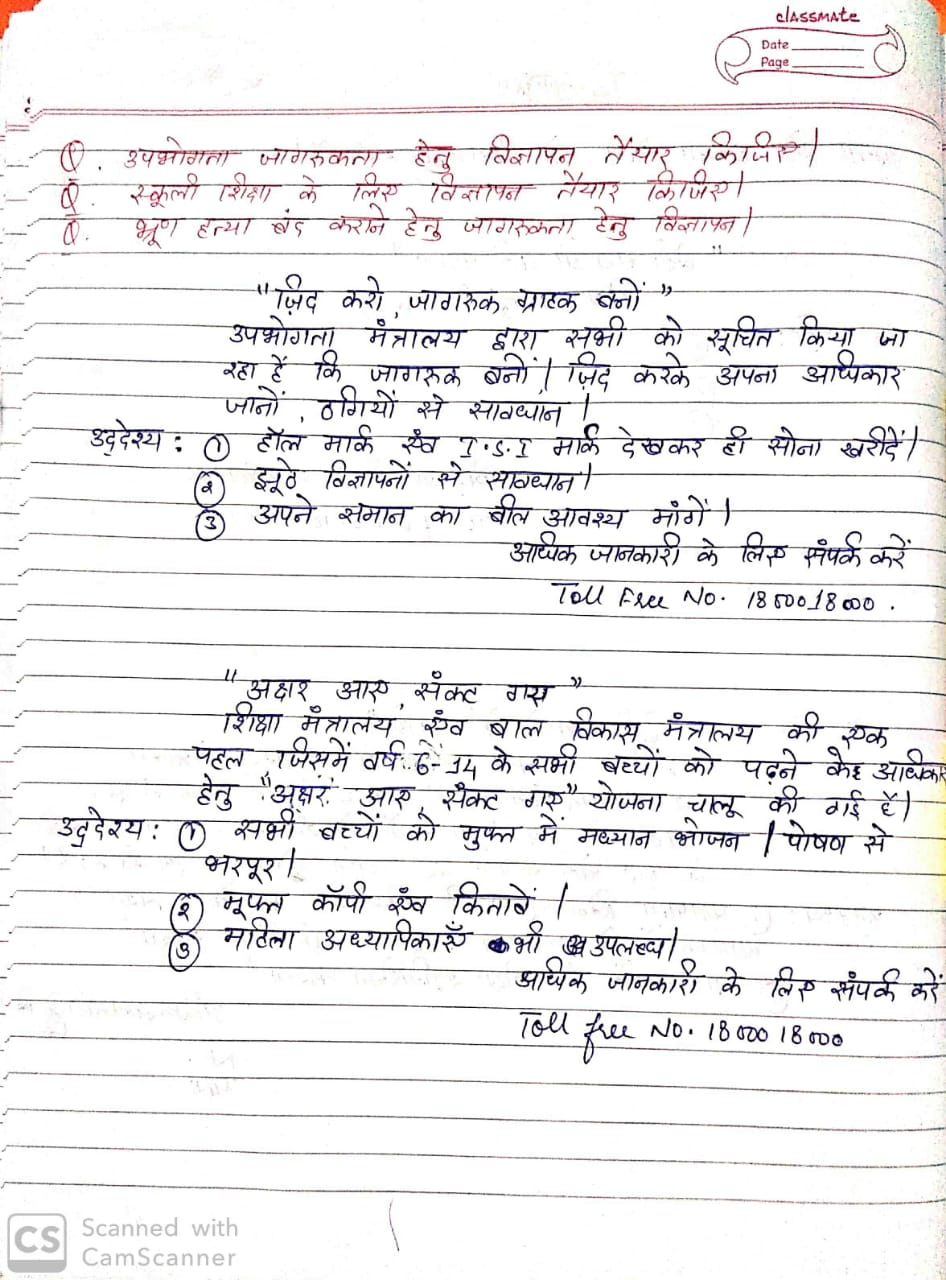 classmate
Date
Page
Q. उपभोगता जागरुकता हेतु विज्ञापन तैयार किजिए।
Q. स्कूली शिक्षा के लिए विज्ञापन तैयार किजिए।
Q. भ्रूण हत्या बंद कराने हेतु जागरुकता हेतु विज्ञापन।
"ज़िद करो, जागरुक ग्राहक बनों"
उपभोगता मंत्रालय द्वारा सभी को सूचित किया जा
रहा हैं कि जागरुक बनों। ज़िद करके अपना अधिकार
जानों, ठगियों से सावधान।
उद्देश्य : ① हॉल मार्क एंव I.S.I मार्क देखकर ही सोना खरीदें।
② झूठे विज्ञापनों से सावधान।
③ अपने समान का बील आवश्य मांगें।
अधिक जानकारी के लिए संपर्क करें
Toll Free No. 1800018000.
"अक्षर आए, संकट गए"
शिक्षा मंत्रालय एंव बाल विकास मंत्रालय की एक
पहल जिसमें वर्ष 6-14 के सभी बच्चों को पढ़ने के अधिकार
हेतु "अक्षर आए, संकट गए" योजना चालू की गई हैं।
उद्देश्य : ① सभी बच्चों को मुफ्त में मध्यान भोजन। पोषण से
भरपूर।
② मूफ्त कॉपी एंव किताबें।
③ महिला अध्यापिकाएँ भी उपलब्ध।
अधिक जानकारी के लिए संपर्क करें
Toll free No. 1800018000
CS Scanned with
CamScanner